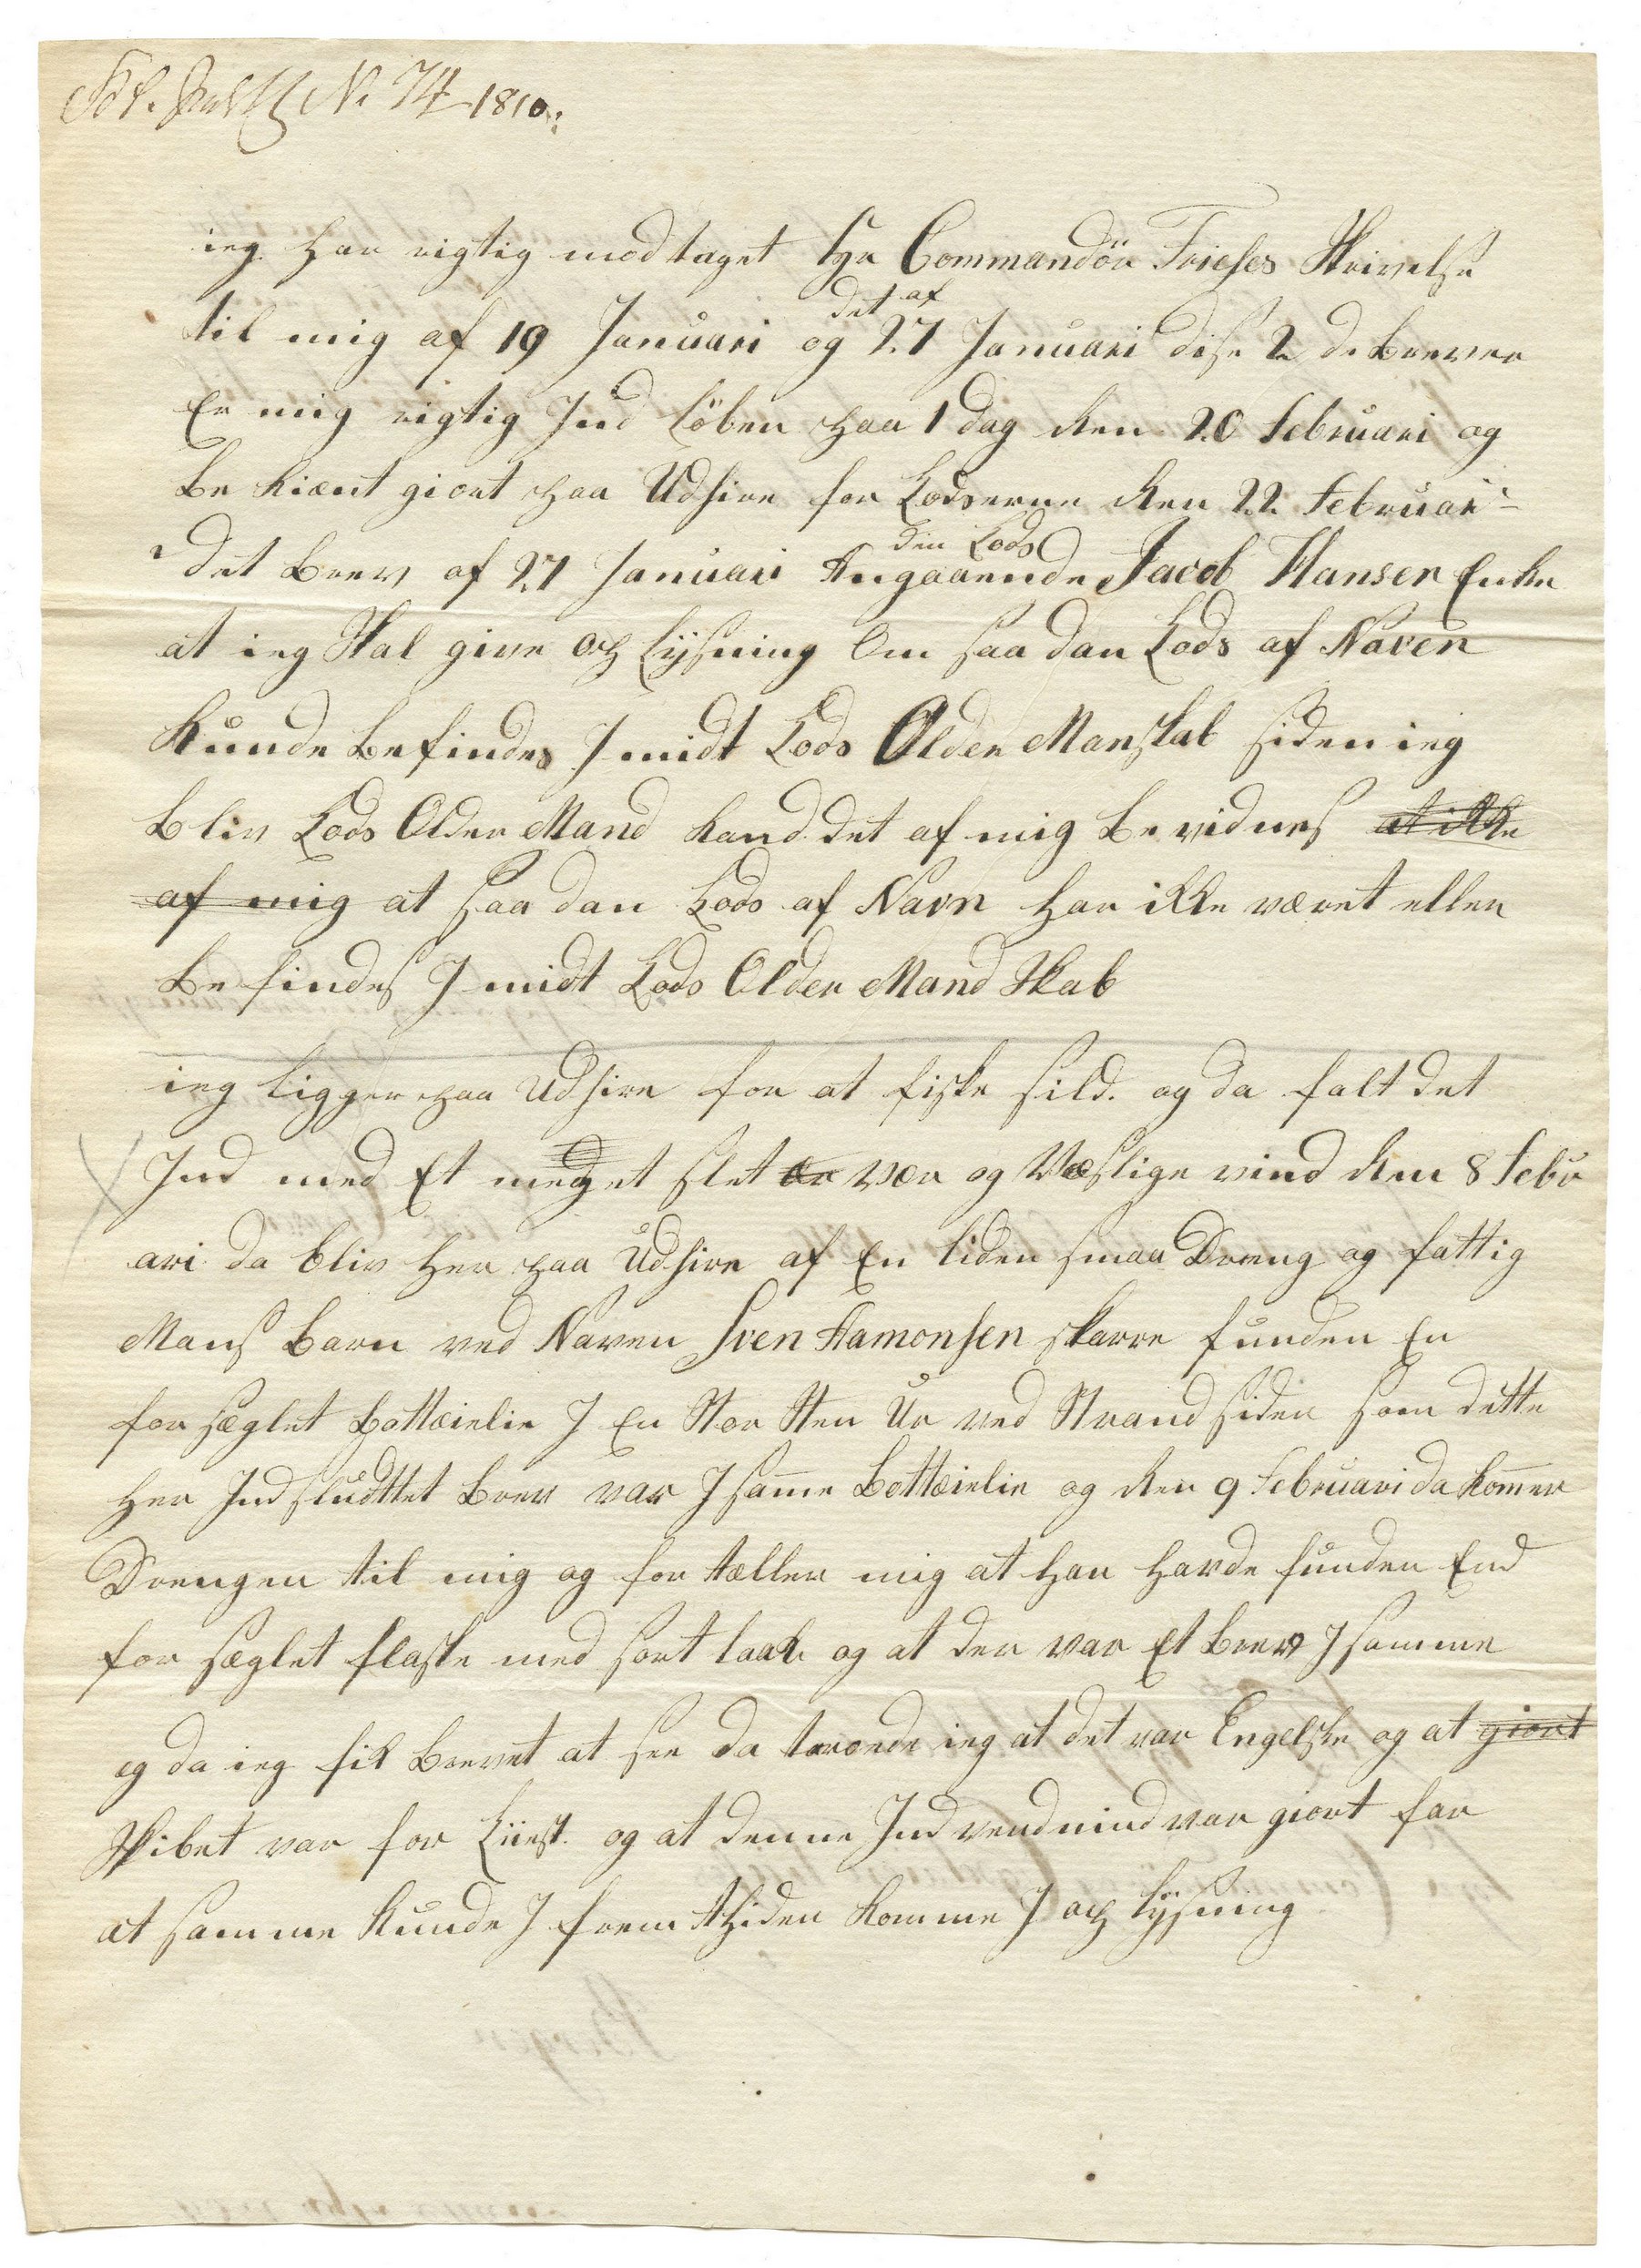 N: 74 1810.
ieg har rigtig modtaget hr Commandör Frieses Skrivelse
det af
til mig af 19 Januari og 27 Januari dise 2 de brever
Er mig rigtig Ind löben paa 1 dag den 20 Februari og
be kiænt giort paa Udsire for Lodserne den 22 Februari
den Lods
det brev af 27 Januari Angaaende Jacob Hansen Enke
at ieg Skal give op lÿsning Om saa dan Lods af Naven
kunde befindes I midt Lods Older Manskab siden ieg
bliv Lods Older Mand kand det af mig be vidnes at ikke
af mig at saa dan Lods af Navn har ikke været eller
be findes I midt Lods Older Mand Skab
ieg ligger paa Udsire for at fiske sild. og da falt det
Ind med Et meget slet vær og Væstlige vind den 8 Febru
ari da bliv her paa Udsire af En liden smaa Dreng og fattig
Mans barn ved Naven Sven Aamonsen funden En
for sæglet bottæielie I En Stor Sten Ur ved Strand siden som dette
her Indsludttet brev var I same bottæielie og den 9 Februari da komer
Drengen til mig og for tæller mig at han havde funden End
for sæglet flaske med sort laak og at der var Et brev I samme
og da ieg fik brevet at see da troede ieg at det var Engelske og at giort
Skibet var for Liist. og at denne Ind vendnind var giort for
at samme kunde I frem thiden komme I op lÿsning